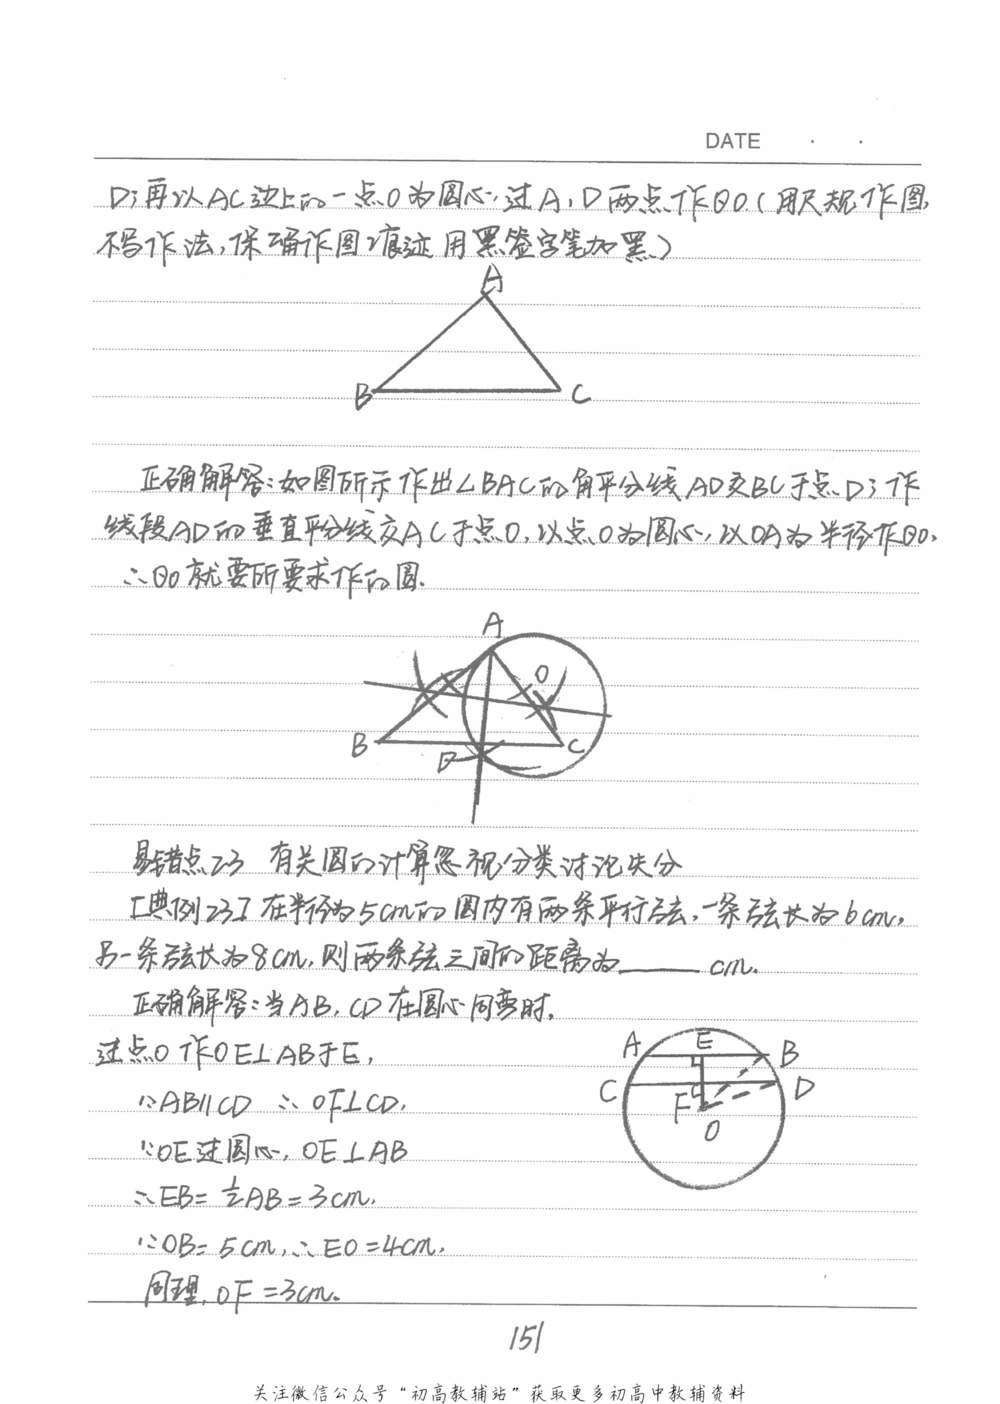 DATE · ·
D;再以AC边上的一点O为圆心,过A,D两点作⊙O.(用尺规作图,
不写作法,保确作图痕迹用黑签字笔加黑)
A
B
C
正确解答:如图所示作出∠BAC的角平分线AD交BC于点D;作
线段AD的垂直平分线交AC于点O,以点O为圆心,以OA为半径作⊙O,
∴⊙O就要所要求作的圆.
A
O
B
D
C
易错点23 有关圆的计算忽视分类讨论失分
[典例23]在半径为5cm的圆内有两条平行弦,一条弦长为6cm,
另一条弦长为8cm,则两条弦之间的距离为______cm.
正确解答:当AB,CD在圆心同旁时,
过点O作OE⊥AB于E,
∵AB∥CD ∴OF⊥CD,
∵OE过圆心,OE⊥AB
∴EB=½AB=3cm,
∵OB=5cm,∴EO=4cm,
同理,OF=3cm。
A
E
B
C
D
F
O
151
关注微信公众号“初高教辅站”获取更多初高中教辅资料